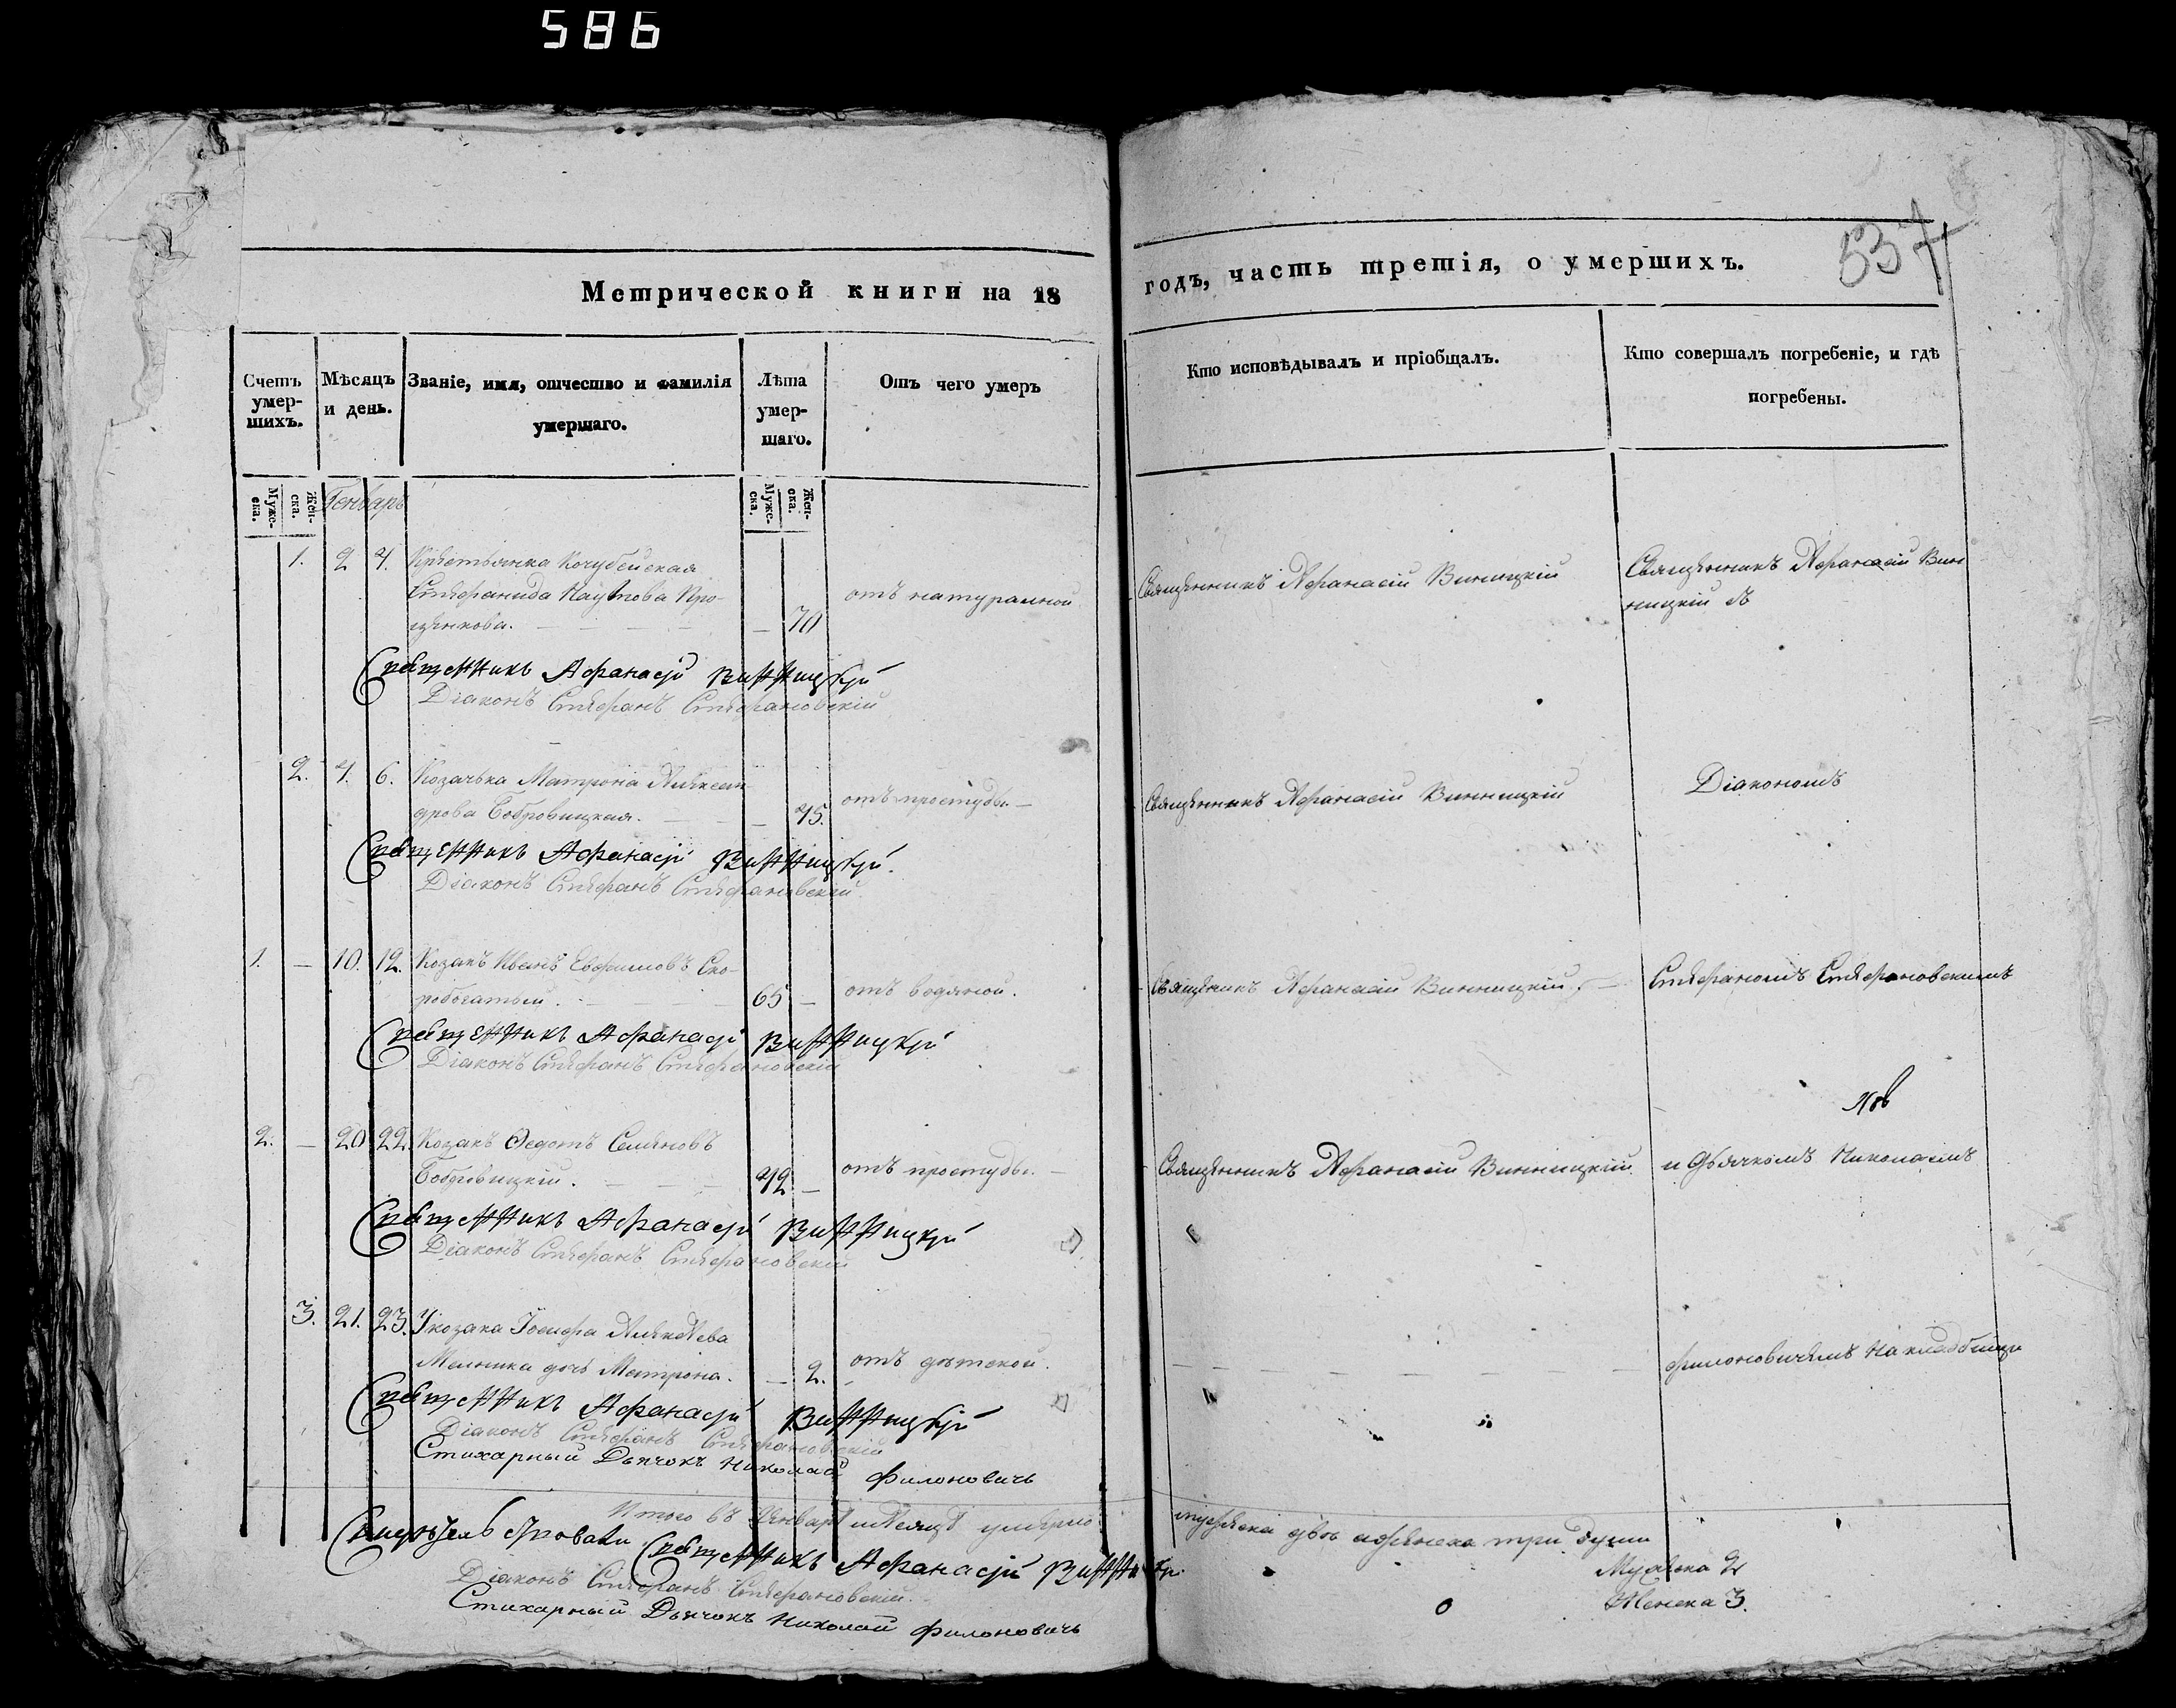 586
537
Метрической книги на 18
годъ, часть третія, о умершихъ.
Счетъ умер-шихъ.
Мѣсяцъ и день.
Званіе, имя, отчество и фамилія
умершаго.
Лѣта умер-шаго.
Отъ чего умеръ
Кто исповѣдывалъ и пріобщалъ.
Кто совершалъ погребеніе, и гдѣ
погребены.
Муже-ска.
Жен-ска.
Генварь
Муже-ска.
Жен-ска.
1. 2 4. Крестьянка Кочубейская
Стефанида
щенкова. — 70
отъ натуральной
Священникъ Афанасій Винницкій
Священникъ Афанасій Вин
ницкій съ
Священникъ Афанасій Винницкій
Діаконъ Стефанъ Стефановскій
2. 4. 6. Козачька Матрона Алексан
дрова Бобровицкая. — 45.
отъ простуды. —
Священникъ Афанасій Винницкій
Діакономъ
Священникъ Афанасій Винницкій.
Діаконъ Стефанъ Стефановскій
1. — 10. 12. Козакъ Иванъ Евфимовъ Ско-
робогатый. 65 —
отъ водяной.
Священникъ Афанасій Винницкій. —
Стефаномъ Стефановскимъ
Священникъ Афанасій Винницкій
Діаконъ Стефанъ Стефановскій
2. — 20 22. Козакъ Ѳедотъ Семеновъ
Бобровицкій. — 42 —
отъ простуды. —
Священникъ Афанасій Винницкій
и дьячкомъ Николаемъ
Священникъ Афанасій Винницкій
Діаконъ Стефанъ Стефановскій
3. 21. 23. У козака Іосифа Алексѣева
Мельника дочь Матрона. — 2.
отъ дѣтской.
Филоновичемъ на кладбищѣ
Священникъ Афанасій Винницкій
Діаконъ Стефанъ Стефановскій
Стихарный Дьячокъ Николай Филоновичь
Итого въ Генварѣ мѣсяцѣ умерло
мужеска двѣ а женска три души
Мужеска 2
Женска 3.
Священникъ Афанасій
Діаконъ Стефанъ Стефановскій.
Стихарный Дьячокъ Николай Филоновичь